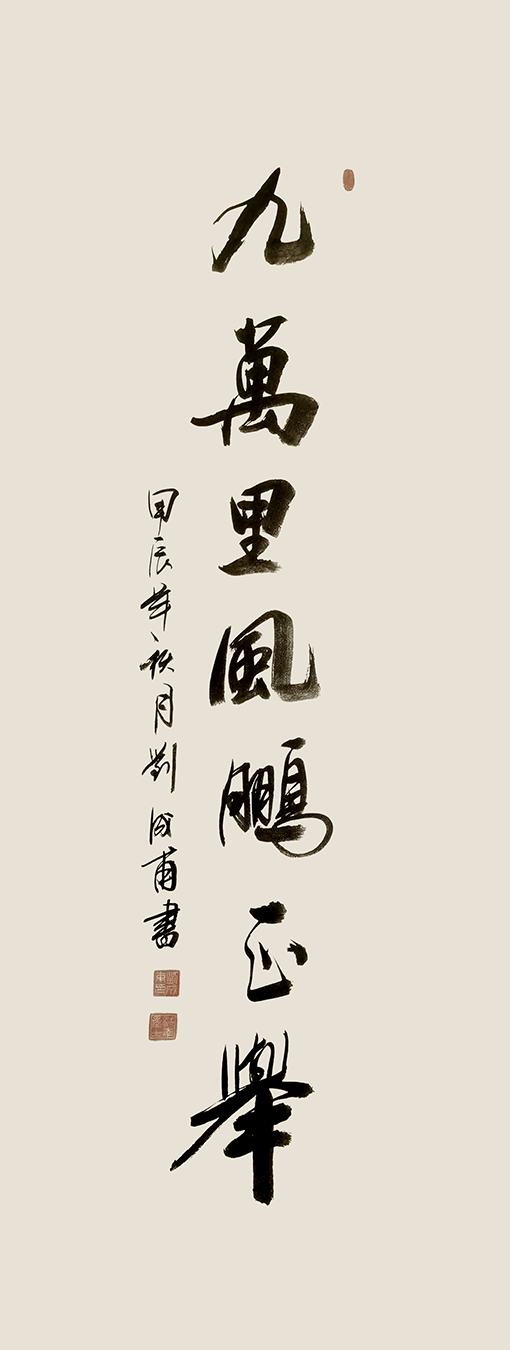 九萬里風鵬正舉
甲辰年秋月劉成甫書